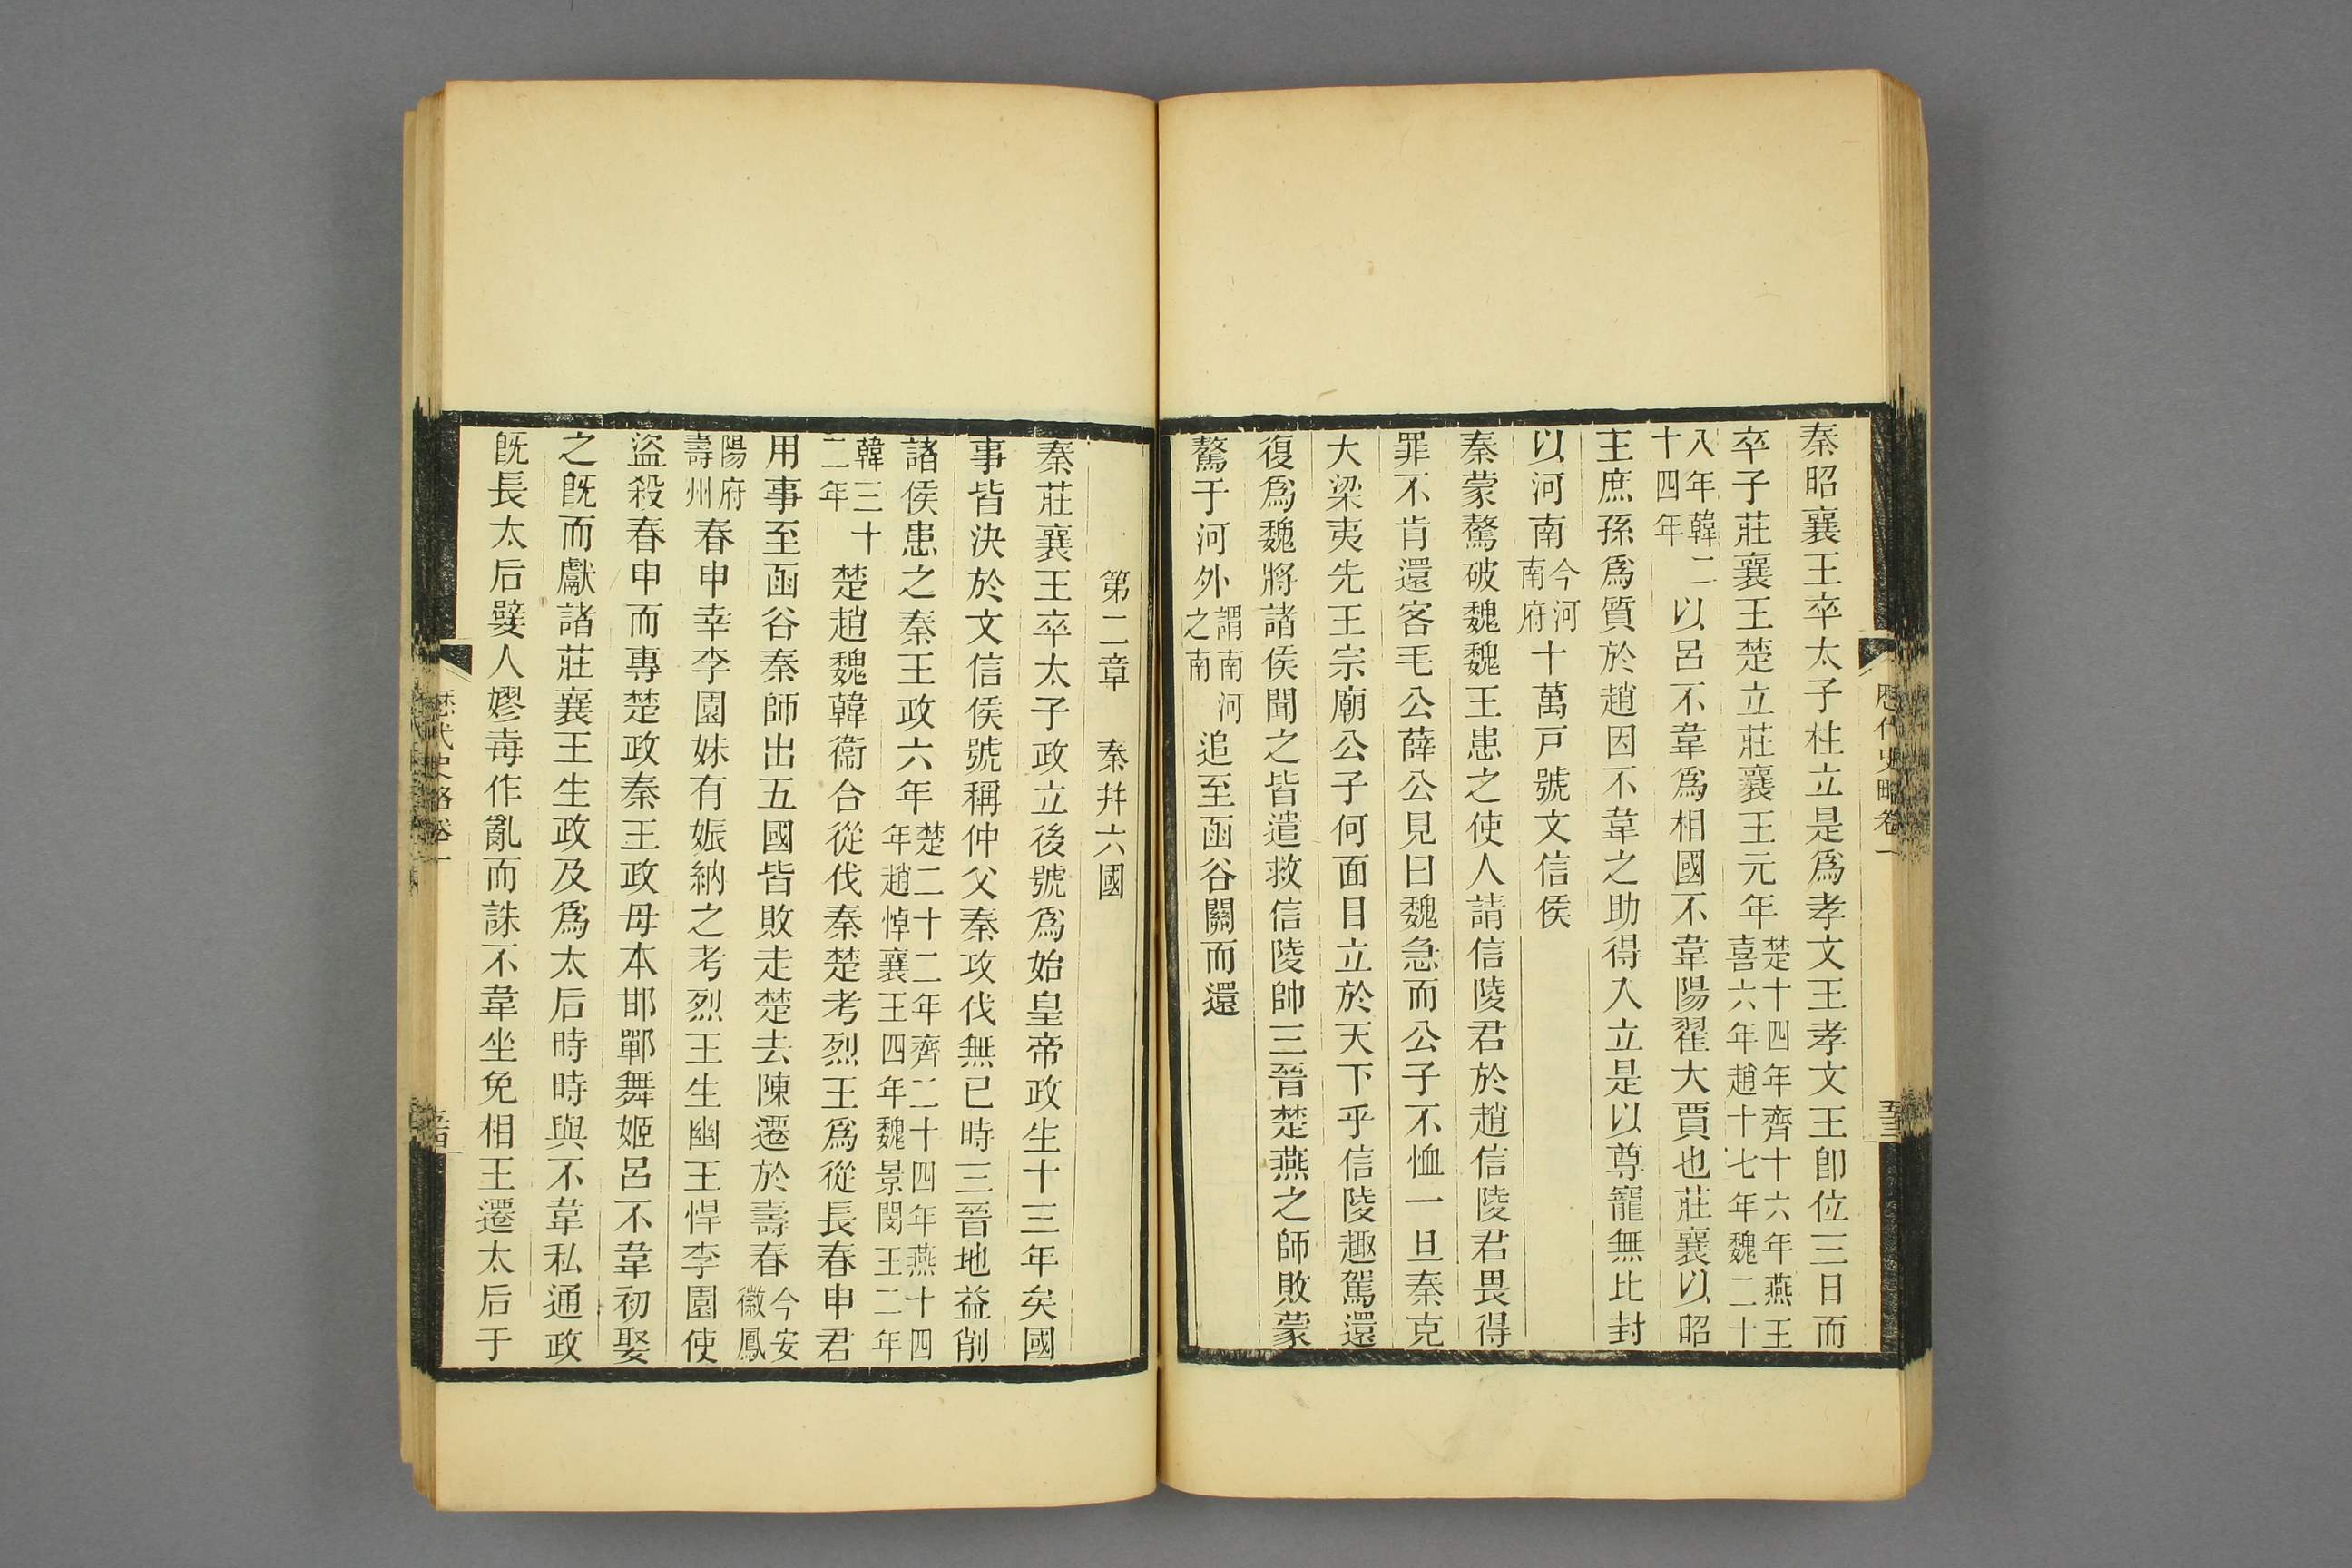 秦昭襄王卒太子柱立是爲孝文王孝文王卽位三日而
卒子莊襄王楚立莊襄王元年楚十四年齊十六年燕王喜六年趙十七年魏二十
八年韓二十四年以呂不韋爲相國不韋陽翟大賈也莊襄以昭
王庶孫爲質於趙因不韋之助得入立是以尊寵無比封
以河南今河南府十萬戸號文信侯
秦蒙驁破魏魏王患之使人請信陵君於趙信陵君畏得
罪不肯還客毛公薛公見曰魏急而公子不恤一旦秦克
大梁夷先王宗廟公子何面目立於天下乎信陵趣駕還
復爲魏將諸侯聞之皆遣救信陵帥三晉楚燕之師敗蒙
驁于河外謂南河之南追至函谷關而還
歷代史略卷一
五十三
第二章 秦幷六國
秦莊襄王卒太子政立後號爲始皇帝政生十三年矣國
事皆決於文信侯號稱仲父秦攻伐無已時三晉地益削
諸侯患之秦王政六年楚二十二年齊二十四年燕十四年趙悼襄王四年魏景閔王二年
韓三十二年楚趙魏韓衞合從伐秦楚考烈王爲從長春申君
用事至函谷秦師出五國皆敗走楚去陳遷於壽春今安徽鳳
陽府壽州春申幸李園妹有娠納之考烈王生幽王悍李園使
盜殺春申而專楚政秦王政母本邯鄲舞姬呂不韋初娶
之旣而獻諸莊襄王生政及爲太后時時與不韋私通政
旣長太后嬖人嫪毐作亂而誅不韋坐免相王遷太后于
歷代史略卷一